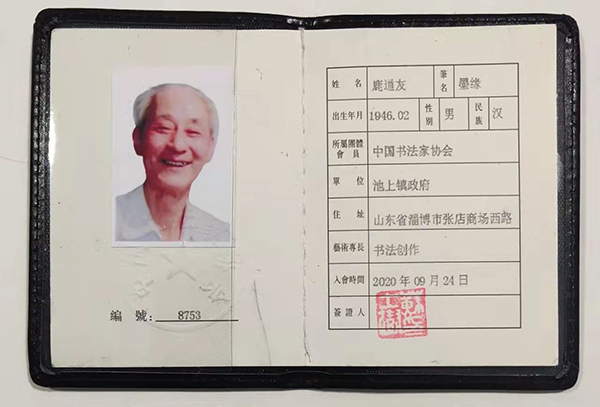 編 號: 8753
姓 名 鹿道友 筆名 墨缘
出生年月 1946.02 性别 男 民族 汉
所屬團體會員 中国书法家协会
單 位 池上镇政府
住 址 山东省淄博市张店商场西路
藝術專長 书法创作
入會時間 2020 年 09 月 24 日
簽證人